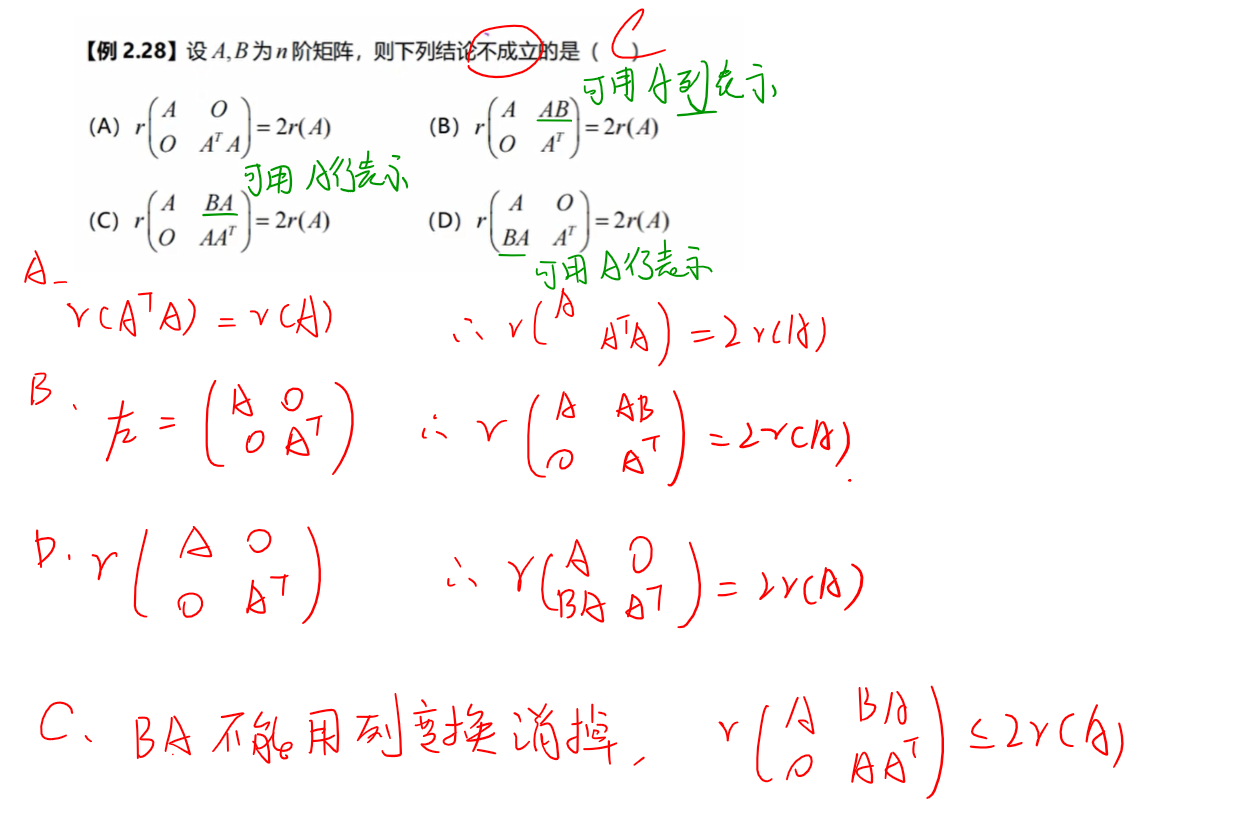 【例 2.28】设 A,B 为 n 阶矩阵，则下列结论不成立的是（ C ）
可用 A 列表示
(A) r(A O; O AᵀA) = 2r(A)
(B) r(A AB; O Aᵀ) = 2r(A)
可用 A行表示
(C) r(A BA; O AAᵀ) = 2r(A)
(D) r(A O; BA Aᵀ) = 2r(A)
可用 A行表示
A.
r(AᵀA) = r(A) ∴ r(A ; AᵀA) = 2r(A)
B. 左 = (A O; O Aᵀ) ∴ r(A AB; O Aᵀ) = 2r(A).
D. r(A O; O Aᵀ) ∴ r(A O; BA Aᵀ) = 2r(A)
C. BA 不能用列变换消掉, r(A BA; O AAᵀ) ≤ 2r(A)